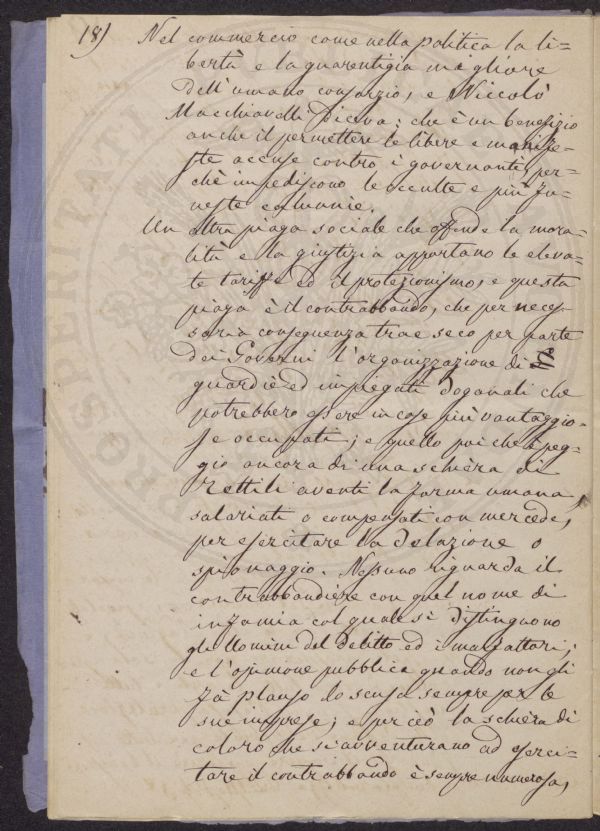 18)
Nel commercio come nella politica la li=
bertà e la guarentigia migliore
dell'umano consorzio, e Niccolò
Macchiavelli diceva: che è un benefizio
anche il permettere le libere e manife=
ste accuse contro i governanti, per=
chè impediscono le occulte e più fu=
neste calunnie.
Un altra piaga sociale che offende la mora=
lità e la giustizia apportano le eleva=
te tariffe ed il protezionismo, e questa
piaga è il contrabbando, che per neces=
saria conseguenza trae seco per parte
dei Governi l'organizzazione di
guardie ed impiegati doganali che
potrebbero essere in cose più vantaggio=
se occupati; e quello poi che è peg=
gio ancora di una schièra di
rettili aventi la forma umana,
salariati o compensati con mercede,
per esercitare la delazione o
spionaggio. Nessuno riguarda il
contrabbandière con quel nome di
infamia col quale si distinguono
gli Uomini del delitto ed i malfattori;
e l'opinione pubblica quando non gli
fà plauso lo scusa sempre per le
sue imprese; e per ciò la schièra di
coloro che si avventurano ad eserci=
tare il contrabbando è sempre numerosa,
PROSPERITA